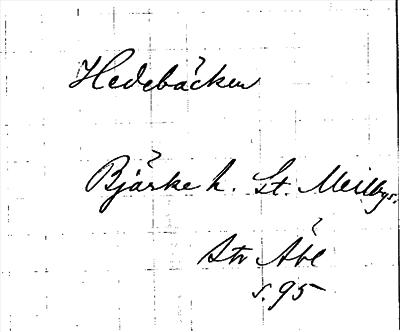 Hedebäcken
Bjärke h. St. Mellby s.
Str Ävl
s. 95